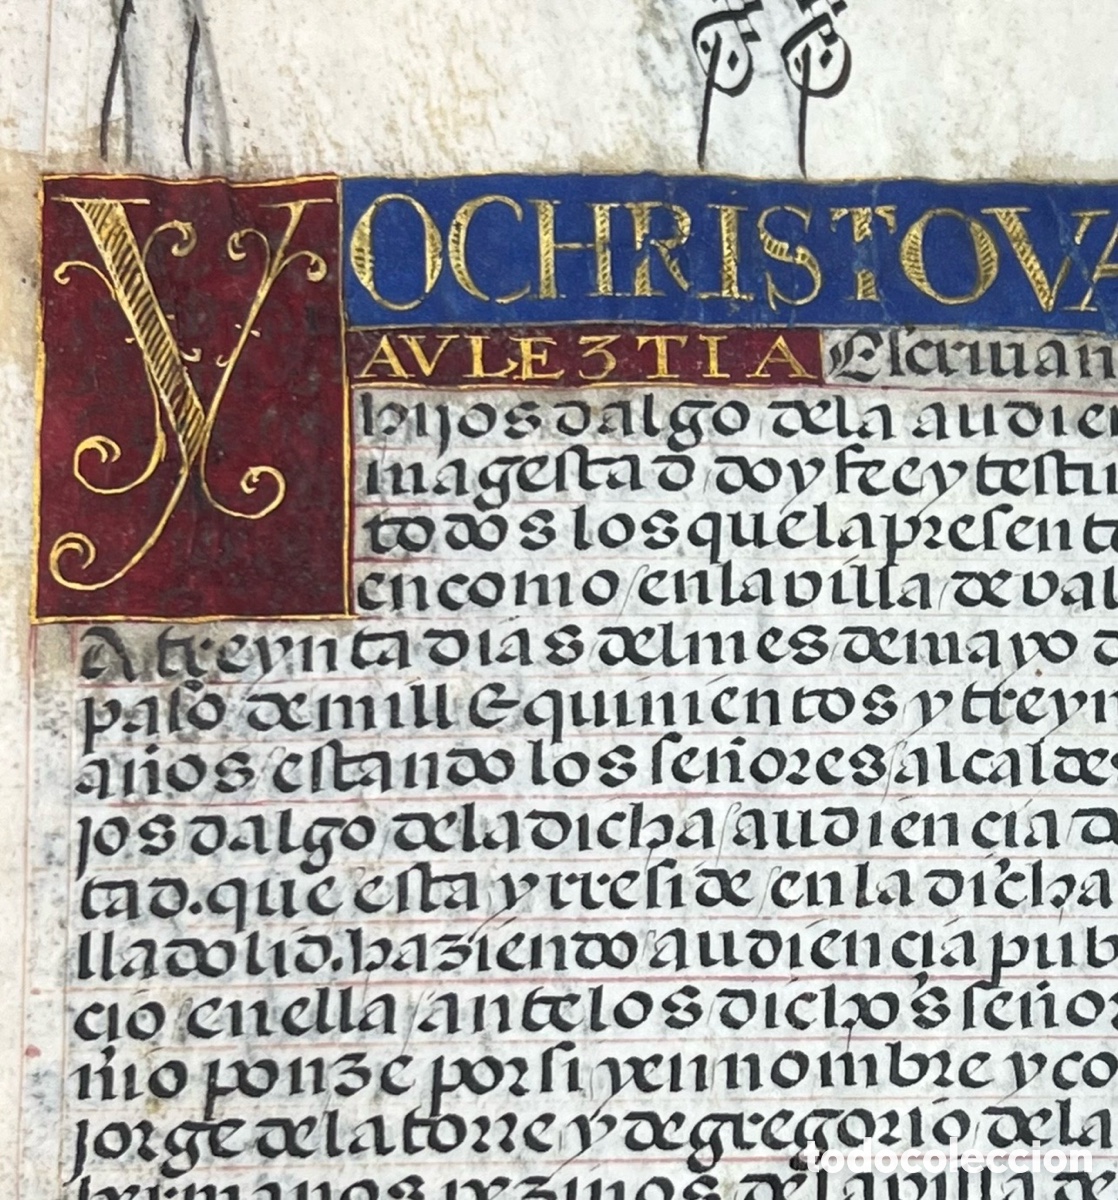 YO CHRISTOVA
AVLE3TIA Escriuan
hijos dalgo dela audien
magestad doy fee y testim
todos los que la presente
en como / en la villa / de val
A treynta dias del mes de mayo d
paso de mill & quinientos y treyn
años / estando los señores / alcaldes
jos dalgo dela dicha / audiencia d
tad. que esta y rreside / en la dicha
lladolid. haziendo / audiencia pub
cio / en ella / ante los dichos seño
nio ponze por si y en nombre y co
jorge de la torre y de gregorio dela
hermanos vezinos de la villa de
todocoleccion